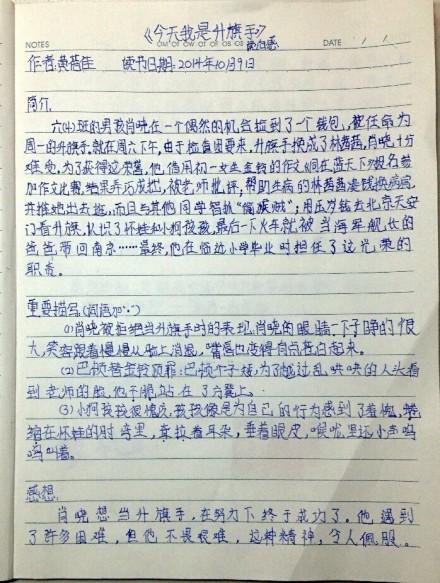 《今天我是升旗手》
NOTES
DATE / /
作者:黄蓓佳 读书日期:2014年10月9日
简介
六(4)班的男孩肖晓在一个偶然的机会捡到了个钱包,被任命为
周一的升旗手,就在周六下午,由于检查团要来,升旗手换成了林茜茜,肖晓十分
难受,为了获得这荣誉,他借用初一女生的作文《同在蓝天下》报名参
加作文比赛,结果弄巧成拙,被老师批评,帮助生病的林茜茜凑钱换病房,
并推她出去逛,而且与其他同学智抓“偷猴贼”;用压岁钱去北京天安
门看升旗,认识了坏娃和小狗孩孩,最后一下火车就被当海军舰长的
爸爸带回南京……最终,他在临近小学毕业时担任了这光荣的
职责。
重要描写(词语加“.”)
(1)肖晓被拒绝当升旗手时的表现,肖晓的眼睛一下子睁的很
大,笑容跟着慢慢从脸上消退,嘴唇也变得白而苍白起来。
(2)巴顿替金铃顶罪:巴顿个子矮,为了越过乱哄哄的人头看
到老师的脸,他干脆站在了凳上。
(3)小狗孩孩很愧疚,孩孩像是为自己的行为感到了羞愧,蜷
缩在坏娃的肘弯里,耷拉着耳朵,垂着眼皮,喉咙里还小声呜
呜叫着。
感想
肖晓想当升旗手,在努力下终于成功了。他遇到
了许多困难,但他不畏艰难,这种精神,令人佩服。